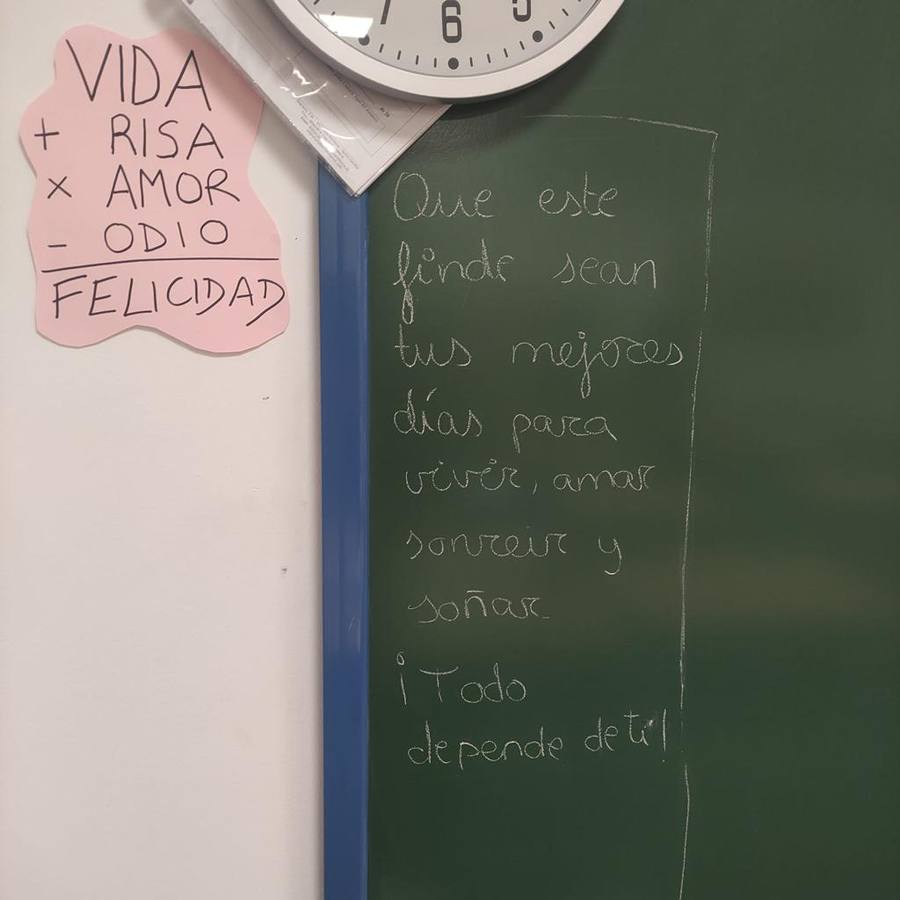 VIDA
+ RISA
× AMOR
- ODIO
FELICIDAD
7 6 5
Que este
finde sean
tus mejores
días para
vivir, amar
sonreir y
soñar
¡Todo
depende de ti!